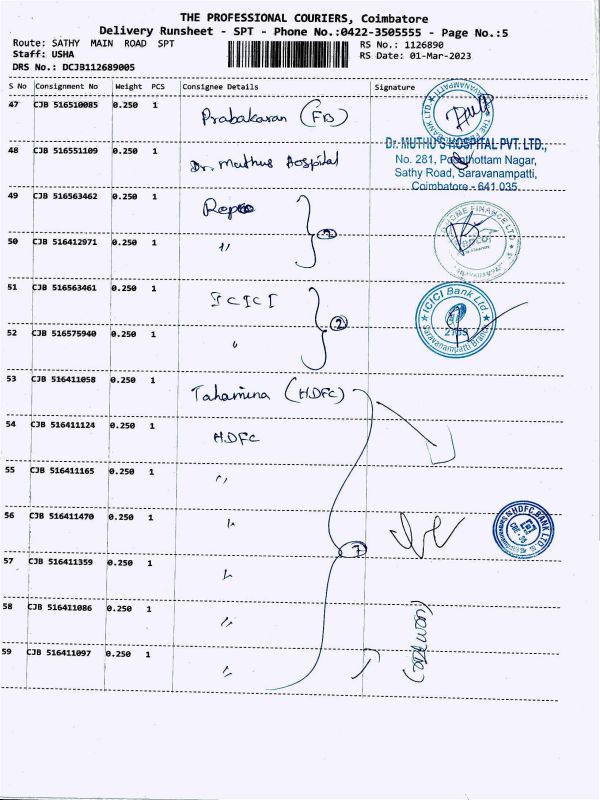 THE PROFESSIONAL COURIERS, Coimbatore
Delivery Runsheet - SPT - Phone No.:0422-3505555 - Page No.:5
Route: SATHY MAIN ROAD SPT
RS No.: 1126890
Staff: USHA
RS Date: 01-Mar-2023
DRS No.: DCJB112689005
S No Consignment No Weight PCS Consignee Details Signature
47 CJB 516510085 0.250 1 Prabakaran (FB)
48 CJB 516551109 0.250 1 Dr. Muthus Hospital
Dr. MUTHU'S HOSPITAL PVT. LTD.,
No. 281, Nagar,
Sathy Road, Saravanampatti,
Coimbatore - 641 035.
49 CJB 516563462 0.250 1
HOME FINANCE LTD.
50 CJB 516412971 0.250 1 "
51 CJB 516563461 0.250 1 ICICI
2
ICICI Bank Ltd.
Saravanampatti Branch
52 CJB 516575940 0.250 1 "
53 CJB 516411058 0.250 1 Tahamina (HDFC)
54 CJB 516411124 0.250 1 HDFC
55 CJB 516411165 0.250 1 "
56 CJB 516411470 0.250 1 "
HDFC BANK LTD.
7
57 CJB 516411359 0.250 1 "
58 CJB 516411086 0.250 1 "
59 CJB 516411097 0.250 1 "